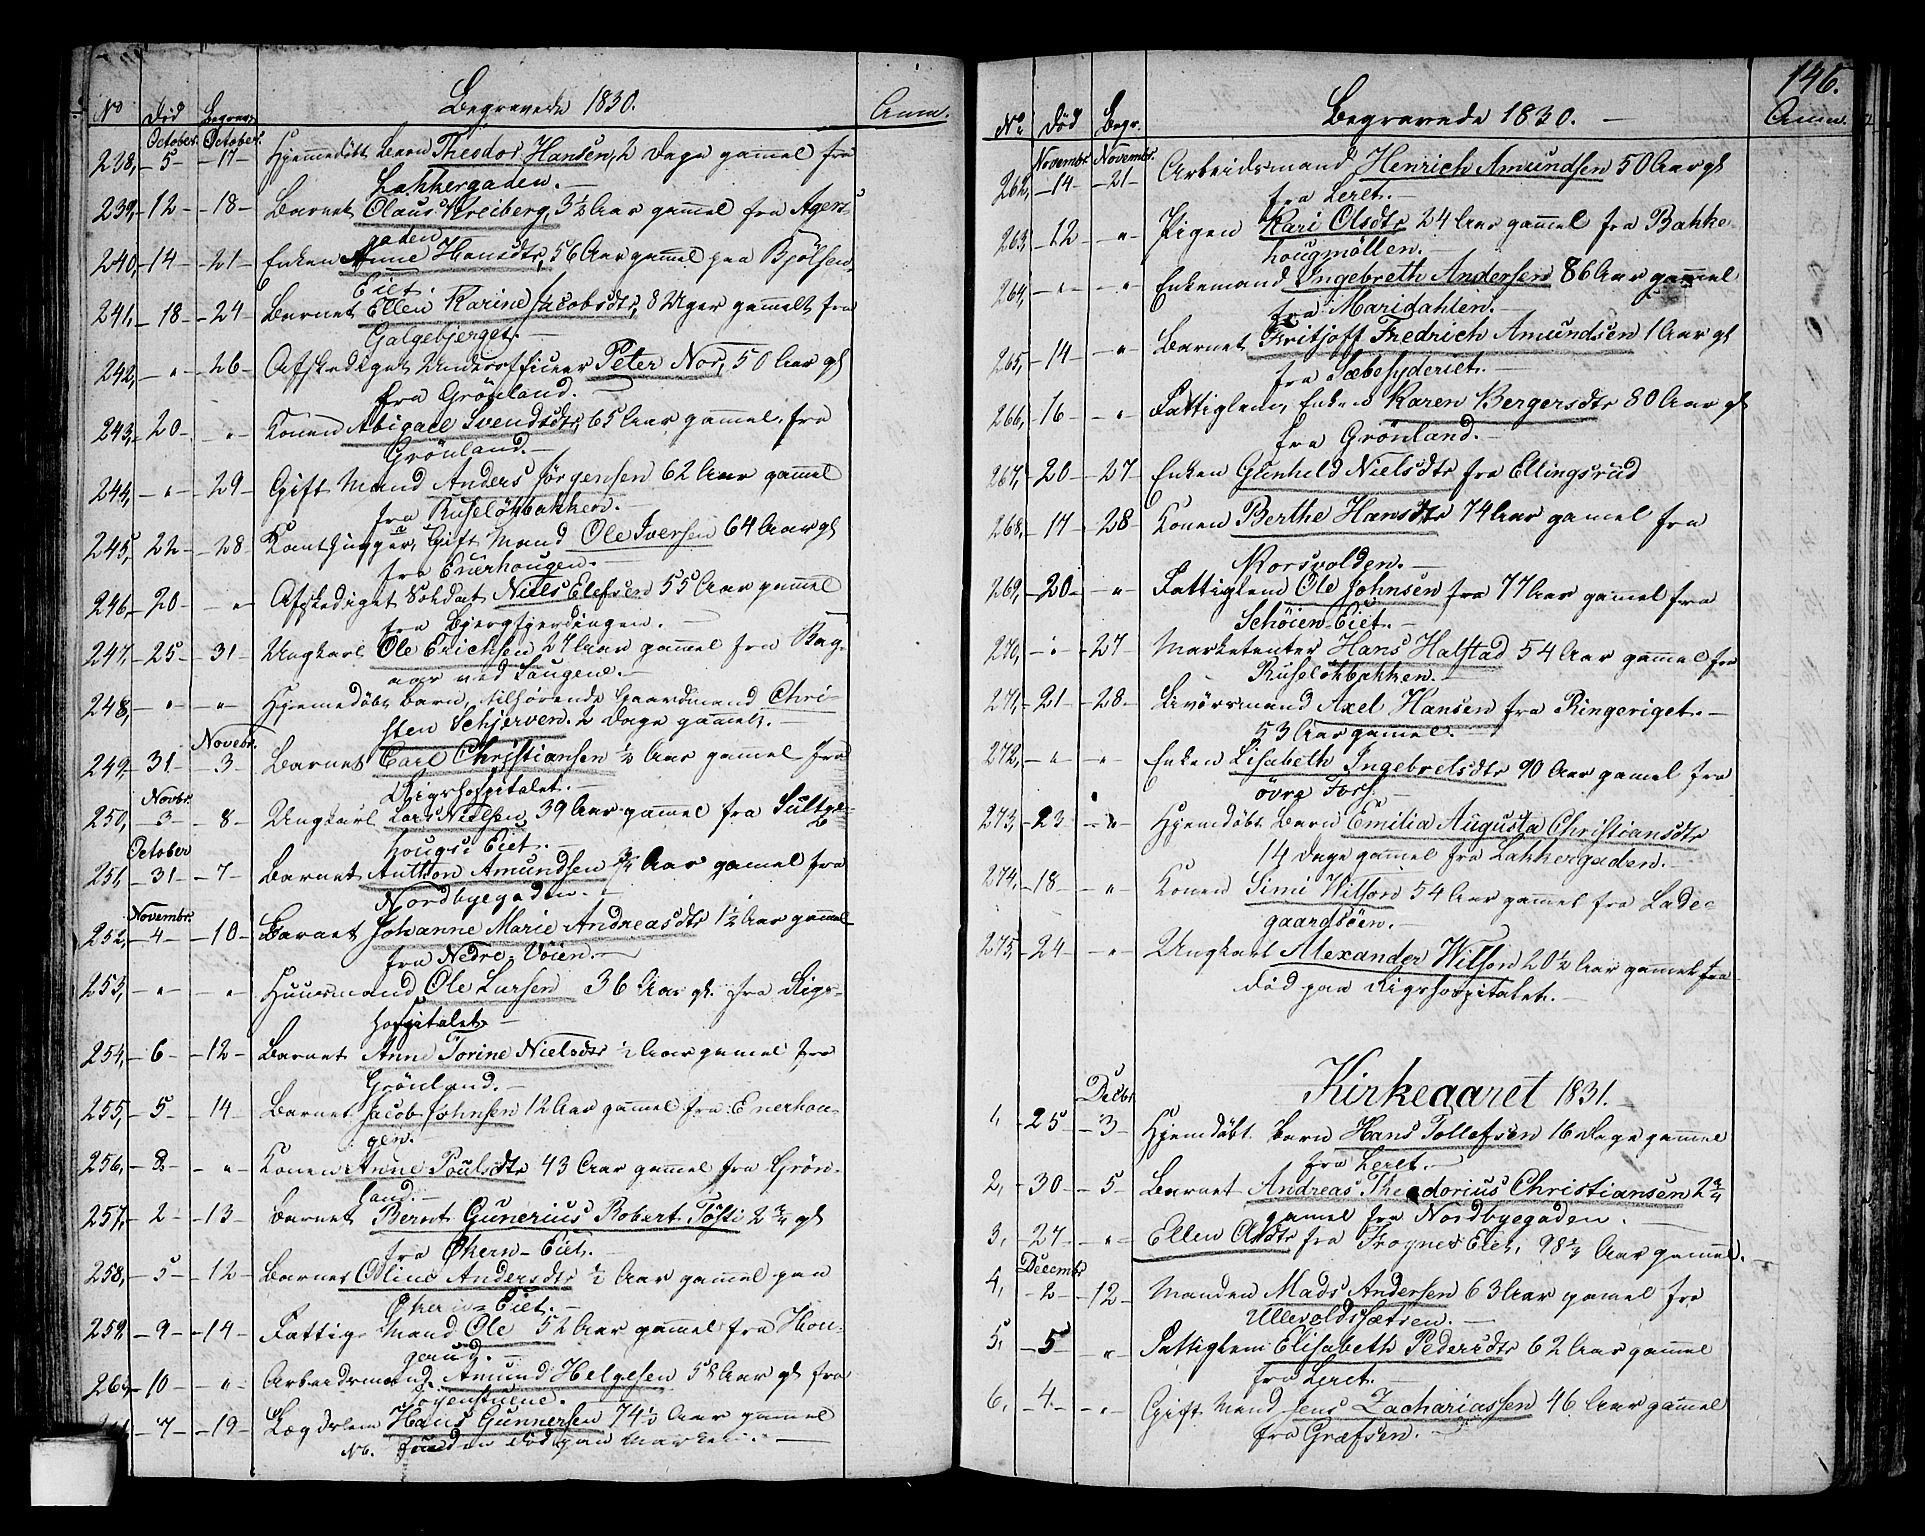 Begravede 1830.
No Død Begrav. Anm.
October. October.
238, -5- -17- Hjemmedøbt Barn Theodor Hansen, 2 Dage gammel fra
Lakkergaden.-
239, -12- -18- Barnet Claus Kreiberg, 3½ Aar gammel fra Agers
gaden
240, -14- -21- Enken Anne Hansdtr, 56 Aar gammel paa Bjølsen
Eiet.
241, -18- -24- Barnet Ellen Karine Jacobsdtr, 8 Uger gammelt fra
Galgebjerget.-
242, -"- -26- Afskediget Underofficeer Peter Nor, 50 Aar gl
fra Grönland.-
243, -20- -"- Konen Abigael Svendsdtr, 65 Aar gammel, fra
Grönland.-
244, -"- -29- Gift Mand Anders Jörgensen 62 Aar gammel
fra Ruselökbakken.-
245, -22- -28- Gift Mand Ole Iversen 64 Aar gl
fra Enerhougen.-
246, -20- -"- Afskediget Soldat Niels Elefsen 55 Aar gammel
fra Bjergfjerdingen.-
247, -25- -31- Ungkarl Ole Erichsen 27 Aar gammel fra Bag-
aar ved Langene.-
248, -"- -"- Hjemedöbt Barn, tilhörende Gaardmand Chri-
sten Schjerven. 2 Dage gammelt.-
Novebr.
249, -31- -3- Barnet Carl Christiansen ½ Aar gammel fra
Rigshospitalet.-
Novbr.
250, -3- -8- Ungkarl Lars Nielsen, 39 Aar gammel fra Sultge-
hougs Eiet.-
October
251, -31- -7- Barnet Anthon Amundsen ¾ Aar gamel fra
Nordbyegaden.-
Novembr.
252, -4- -10- Barnet Johanne Marie Andreasdtr 1½ Aar gammel
fra Nedre-Vöien.-
253, -"- -"- Huusmand Ole Larsen 36 Aar gl. fra Rigs-
hospitalet-
254, -6- -12- Barnet Anne Torine Nielsdtr ½ Aar gamel fra
Grönland.-
255, -5- -14- Barnet Jacob Johnsen 12 Aar gammel fra Enerhou-
gen.-
256, -8- -"- Konen Anne Poulsdtr 43 Aar gammel fra Grön-
land.-
257, -2- -13- Barnet Bernt Gunerius Robert Tösti 2¾ gl
fra Økern-Eiet.-
258, -5- -12- Barnet Oline Andersdtr ½ Aar gammel paa
Økern-Eiet.-
259, -9- -14- Fattig-Mand Ole 52 Aar gammel fra Hou-
gerud.-
260, -10- -"- Arbeidsmand, Amund Helgesen 58 Aar gl fra
Töyenstuene.-
261, -7- -19- Lægdslem Hans Gunnersen 74½ Aar gammel
Nb. funden död paa Marken.-
146.
Begravede 1830.-
No. Död Begr. Anm.
Novembr. Novembr.
262, -14- -21- Arbeidsmand Henrich Amundsen 50 Aar gl
fra Leret.-
263, -12- -"- Pigen Kari Olsdtr 24 Aar gammel fra Bakke-
hougmöllen.
264, -"- -"- Enkemand Ingebreth Andersen 86 Aar gammel
fra Maridahlen.-
265, -14- -"- Barnet Fritjoff Fredrich Amundsen 1 Aar gl
fra Sæbesyderiet.-
266, -16- -"- Fattiglem, Enken Karen Bergersdtr 80 Aar gl
fra Grönland.-
267, -20- -27 Enken Gunhild Nielsdtr fra Ellingsrud
268, -17- -28- Konen Berthe Hansdtr 74 Aar gamel fra
Korsvolden.-
269, -20- -"- Fattiglem Ole Johnsen fra 77 Aar gamel fra
Schöien-Eiet.-
270, -"- -27- Marketenter Hans Halstad 54 Aar gammel fra
Ruselökbakken.-
271, -21- -28- Axel Hansen fra Ringeriget.-
53 Aar gamel.-
272, -"- -"- Enken Lisabeth Ingebretsdtr 90 Aar gamel fra
övre Fors.-
273, -23- -"- Hjemdöbt Barn Emilia Augusta Christiansdtr
14 Dage gammel fra Lakkergaden.-
274, -18- -"- Konen Simi Wilson 54 Aar gammel fra Lade-
gaardsöen.-
275, -24- -"- Ungkarl Alexander Wilson 20½ Aar gammel fra
död paa Rigshospitalet.-
Kirkeaaret 1831.-
Decbr
1, -25- -3- Hjemdöbt Barn Hans Tollefsen 16 Dage gammel
fra Leret.-
2, -30- -5- Barnet Andreas Theodorius Christiansen 2¾
gamel fra Nordbyegaden.-
3, -27- -"- Ellen Olsdtr fra Frogner Eiet, 98½ Aar gammel.-
Decembr
4, -2- -12- Manden Mads Andersen 63 Aar gamel fra
Ullevoldssætren.-
5, -5- -"- Fattiglem Elisabeth Pedersdtr 62 Aar gammel
fra Leret.-
6, -4- -"- Gift Mand Jens Zachariassen 46 Aar gammel
fra Græfsen.-